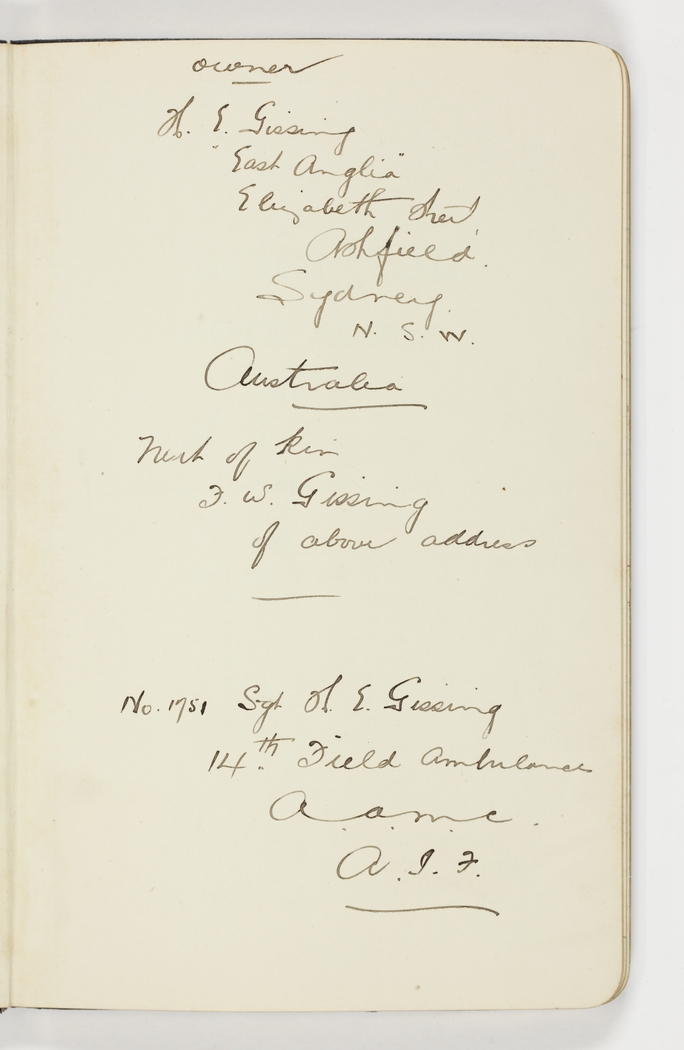 owner
H. E. Gissing
"East Anglia"
Elizabeth Street
Ashfield.
Sydney.
N. S. W.
Australia
Next of kin
F. W. Gissing
of above address
No. 1751 Sgt H. E. Gissing
14th Field Ambulance
A.A.M.C.
A.I.F.